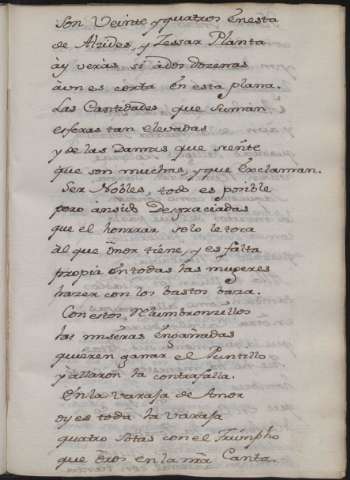 Son Veinte y quatros en esta
de Alzides, y Zessar Planta
ay veras si ados dozenas
aun es corta en esta plana.
Las Cantidades que suman
esferas tan elevadas
y de las Damas que siente
que son muchas, y que exclaman.
Ser Nobles, todo es posible
pero an sido Desgraciadas
que el honrrar solo le toca
al que onor tiene, y es falta
propia en todas las mugeres
hazer con los bastos baza.
Con estos
las miseras engañadas
quieren ganar el Puntillo
y allaron la contrafalla.
En la varaja de Amor
oy es toda la varaja
quatro sotas con el Triumpho
que Dios en la Canta.